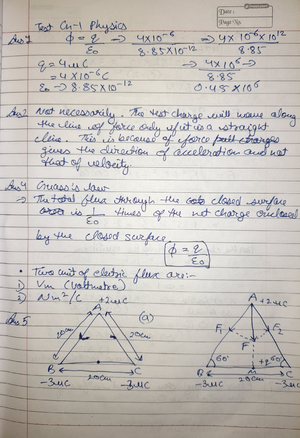 Date :
Page No.
Test Ch-1 Physics
Ans1 φ = q/ε0 → 4×10^-6 / 8.85×10^-12 → 4×10^-6×10^12 / 8.85
q = 4μC
= 4×10^-6C → 4×10^6 → / 8.85
ε0 → 8.85×10^-12 0.45×10^6
Ans2 Not necessarily. The test charge will move along
the line of force only if it is a straight
line. This is because of force
gives the direction of acceleration and not
that of velocity
Ans4 Guass's law
→ The total flux through the closed surface
is 1/ε0 times of the net charge enclosed
by the closed surface
φ = q/ε0
• Two unit of electric flux are:-
1) Vm (Voltmetre)
2) Nm²/C
Ans5 A +2μC (a) A +2μC
20cm 20cm F1 F F2
60° 60°
B 20cm C B 20cm C
-3μC -3μC -3μC -3μC